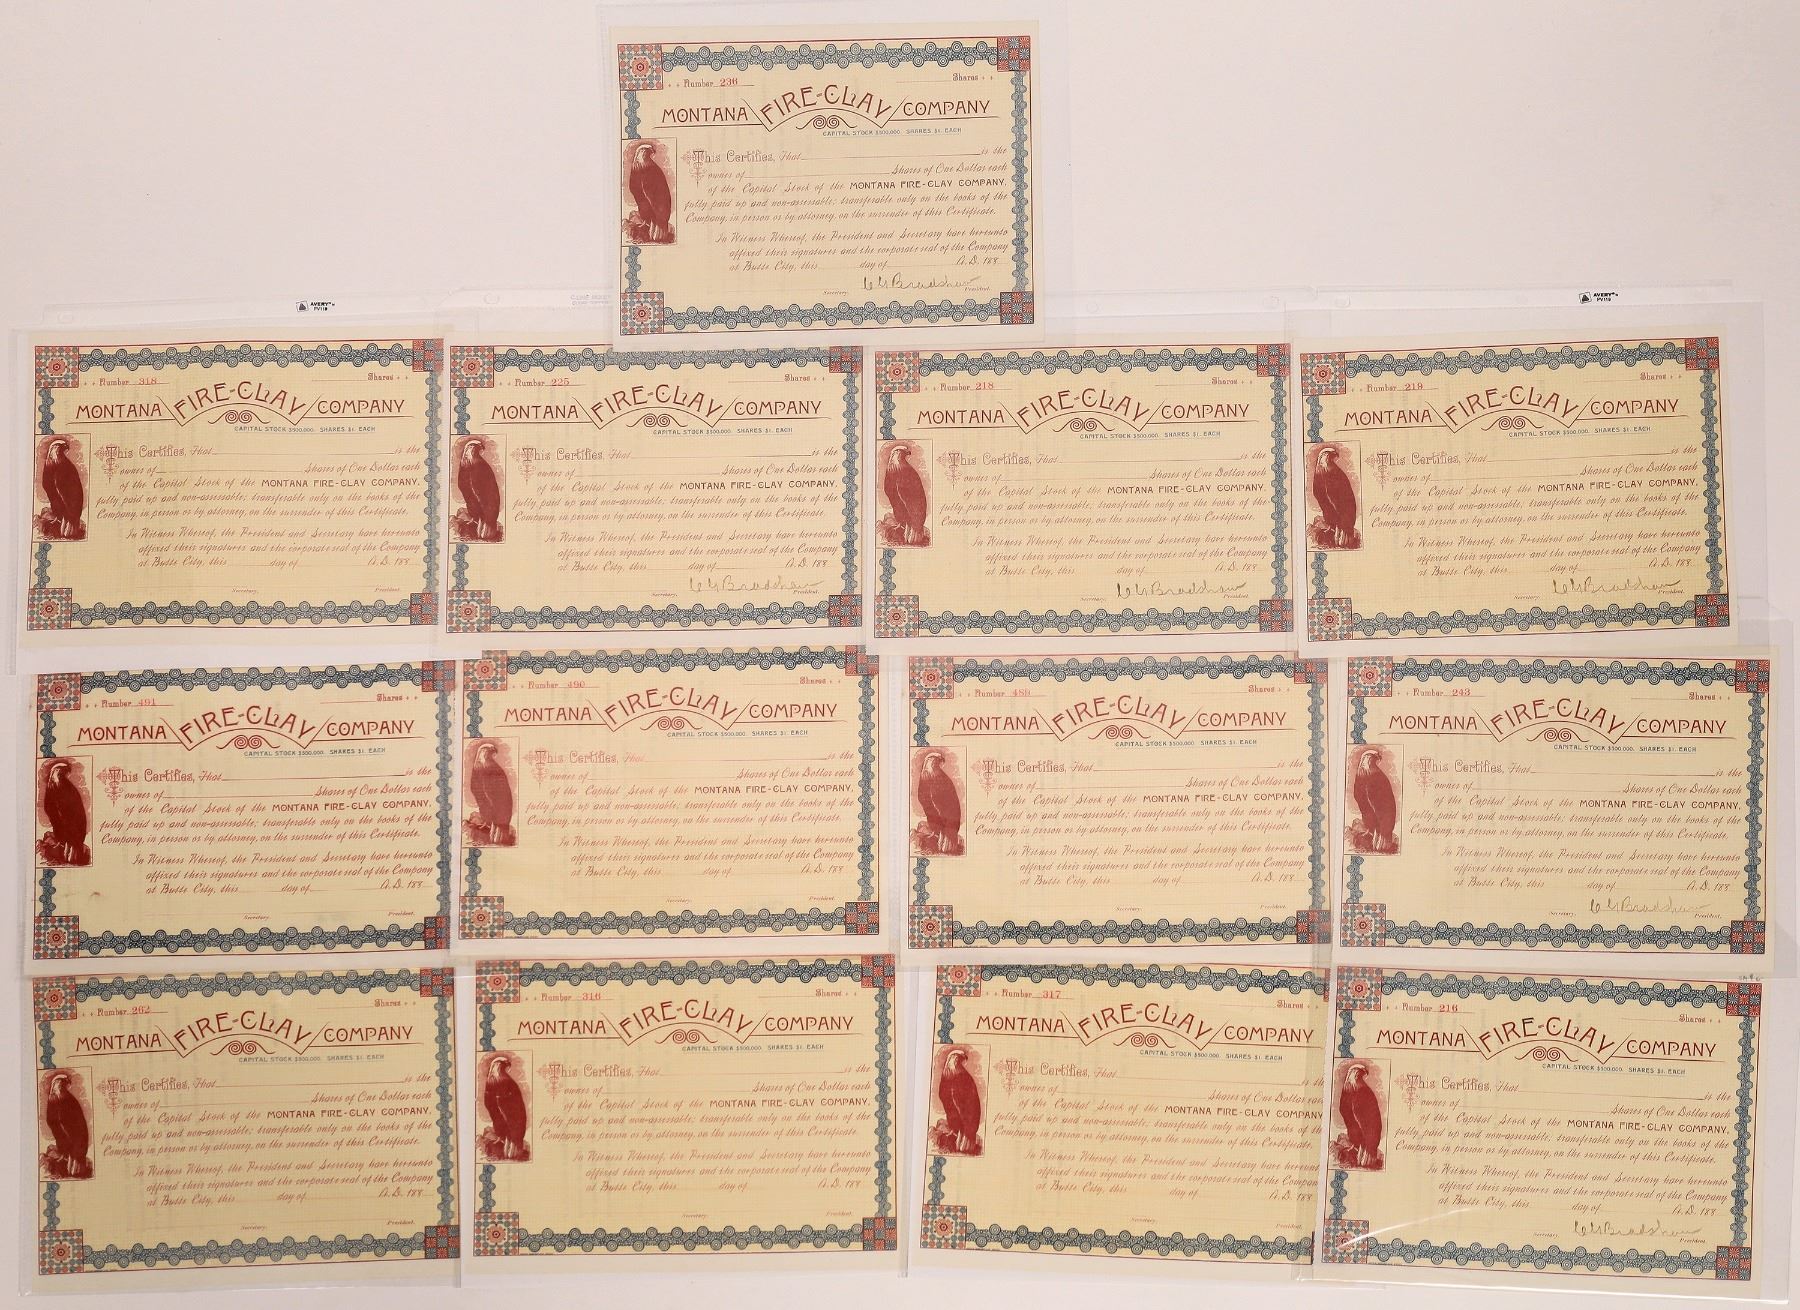 Number 236 Shares
MONTANA FIRE-CLAY COMPANY
CAPITAL STOCK $500,000. SHARES $1. EACH
This Certifies, That is the
owner of Shares of One Dollar each
of the Capital Stock of the MONTANA FIRE-CLAY COMPANY,
fully paid up and non-assessable; transferable only on the books of the
Company, in person or by attorney, on the surrender of this Certificate.
In Witness Whereof, the President and Secretary have hereunto
affixed their signatures and the corporate seal of the Company
at Butte City, this day of A.D. 188
Secretary. Bradshaw President.
AVERY PV119
AVERY PV119
Number 318 Shares
MONTANA FIRE-CLAY COMPANY
CAPITAL STOCK $500,000. SHARES $1. EACH
This Certifies, That is the
owner of Shares of One Dollar each
of the Capital Stock of the MONTANA FIRE-CLAY COMPANY,
fully paid up and non-assessable; transferable only on the books of the
Company, in person or by attorney, on the surrender of this Certificate.
In Witness Whereof, the President and Secretary have hereunto
affixed their signatures and the corporate seal of the Company
at Butte City, this day of A.D. 188
Secretary. President.
Number 225 Shares
MONTANA FIRE-CLAY COMPANY
CAPITAL STOCK $500,000. SHARES $1. EACH
This Certifies, That is the
owner of Shares of One Dollar each
of the Capital Stock of the MONTANA FIRE-CLAY COMPANY,
fully paid up and non-assessable; transferable only on the books of the
Company, in person or by attorney, on the surrender of this Certificate.
In Witness Whereof, the President and Secretary have hereunto
affixed their signatures and the corporate seal of the Company
at Butte City, this day of A.D. 188
Secretary. Bradshaw President.
Number 218 Shares
MONTANA FIRE-CLAY COMPANY
CAPITAL STOCK $500,000. SHARES $1. EACH
This Certifies, That is the
owner of Shares of One Dollar each
of the Capital Stock of the MONTANA FIRE-CLAY COMPANY,
fully paid up and non-assessable; transferable only on the books of the
Company, in person or by attorney, on the surrender of this Certificate.
In Witness Whereof, the President and Secretary have hereunto
affixed their signatures and the corporate seal of the Company
at Butte City, this day of A.D. 188
Secretary. Bradshaw President.
Number 219 Shares
MONTANA FIRE-CLAY COMPANY
CAPITAL STOCK $500,000. SHARES $1. EACH
This Certifies, That is the
owner of Shares of One Dollar each
of the Capital Stock of the MONTANA FIRE-CLAY COMPANY,
fully paid up and non-assessable; transferable only on the books of the
Company, in person or by attorney, on the surrender of this Certificate.
In Witness Whereof, the President and Secretary have hereunto
affixed their signatures and the corporate seal of the Company
at Butte City, this day of A.D. 188
Secretary. Bradshaw President.
Number 491 Shares
MONTANA FIRE-CLAY COMPANY
CAPITAL STOCK $500,000. SHARES $1. EACH
This Certifies, That is the
owner of Shares of One Dollar each
of the Capital Stock of the MONTANA FIRE-CLAY COMPANY,
fully paid up and non-assessable; transferable only on the books of the
Company, in person or by attorney, on the surrender of this Certificate.
In Witness Whereof, the President and Secretary have hereunto
affixed their signatures and the corporate seal of the Company
at Butte City, this day of A.D. 188
Secretary. President.
Number 490 Shares
MONTANA FIRE-CLAY COMPANY
CAPITAL STOCK $500,000. SHARES $1. EACH
This Certifies, That is the
owner of Shares of One Dollar each
of the Capital Stock of the MONTANA FIRE-CLAY COMPANY,
fully paid up and non-assessable; transferable only on the books of the
Company, in person or by attorney, on the surrender of this Certificate.
In Witness Whereof, the President and Secretary have hereunto
affixed their signatures and the corporate seal of the Company
at Butte City, this day of A.D. 188
Secretary. President.
Number 489 Shares
MONTANA FIRE-CLAY COMPANY
CAPITAL STOCK $500,000. SHARES $1. EACH
This Certifies, That is the
owner of Shares of One Dollar each
of the Capital Stock of the MONTANA FIRE-CLAY COMPANY,
fully paid up and non-assessable; transferable only on the books of the
Company, in person or by attorney, on the surrender of this Certificate.
In Witness Whereof, the President and Secretary have hereunto
affixed their signatures and the corporate seal of the Company
at Butte City, this day of A.D. 188
Secretary. President.
Number 243 Shares
MONTANA FIRE-CLAY COMPANY
CAPITAL STOCK $500,000. SHARES $1. EACH
This Certifies, That is the
owner of Shares of One Dollar each
of the Capital Stock of the MONTANA FIRE-CLAY COMPANY,
fully paid up and non-assessable; transferable only on the books of the
Company, in person or by attorney, on the surrender of this Certificate.
In Witness Whereof, the President and Secretary have hereunto
affixed their signatures and the corporate seal of the Company
at Butte City, this day of A.D. 188
Secretary. Bradshaw President.
Number 262 Shares
MONTANA FIRE-CLAY COMPANY
CAPITAL STOCK $500,000. SHARES $1. EACH
This Certifies, That is the
owner of Shares of One Dollar each
of the Capital Stock of the MONTANA FIRE-CLAY COMPANY,
fully paid up and non-assessable; transferable only on the books of the
Company, in person or by attorney, on the surrender of this Certificate.
In Witness Whereof, the President and Secretary have hereunto
affixed their signatures and the corporate seal of the Company
at Butte City, this day of A.D. 188
Secretary. President.
Number 316 Shares
MONTANA FIRE-CLAY COMPANY
CAPITAL STOCK $500,000. SHARES $1. EACH
This Certifies, That is the
owner of Shares of One Dollar each
of the Capital Stock of the MONTANA FIRE-CLAY COMPANY,
fully paid up and non-assessable; transferable only on the books of the
Company, in person or by attorney, on the surrender of this Certificate.
In Witness Whereof, the President and Secretary have hereunto
affixed their signatures and the corporate seal of the Company
at Butte City, this day of A.D. 188
Secretary. President.
Number 317 Shares
MONTANA FIRE-CLAY COMPANY
CAPITAL STOCK $500,000. SHARES $1. EACH
This Certifies, That is th
owner of Shares of One Dollar eac
of the Capital Stock of the MONTANA FIRE-CLAY COMPANY
fully paid up and non-assessable; transferable only on the books of th
Company, in person or by attorney, on the surrender of this Certificate.
In Witness Whereof, the President and Secretary have hereunt
affixed their signatures and the corporate seal of the Compan
at Butte City, this day of A.D. 188
Secretary. President.
Number 216 Shares
MONTANA FIRE-CLAY COMPANY
CAPITAL STOCK $500,000. SHARES $1. EACH
This Certifies, That is the
owner of Shares of One Dollar each
of the Capital Stock of the MONTANA FIRE-CLAY COMPANY,
fully paid up and non-assessable; transferable only on the books of the
Company, in person or by attorney, on the surrender of this Certificate.
In Witness Whereof, the President and Secretary have hereunto
affixed their signatures and the corporate seal of the Company
at Butte City, this day of A.D. 188
Secretary. Bradshaw President.